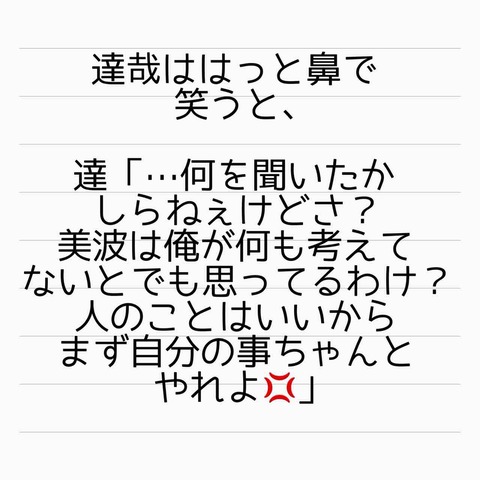 達哉ははっと鼻で
笑うと、
達「…何を聞いたか
しらねぇけどさ？
美波は俺が何も考えて
ないとでも思ってるわけ？
人のことはいいから
まず自分の事ちゃんと
やれよ💢」